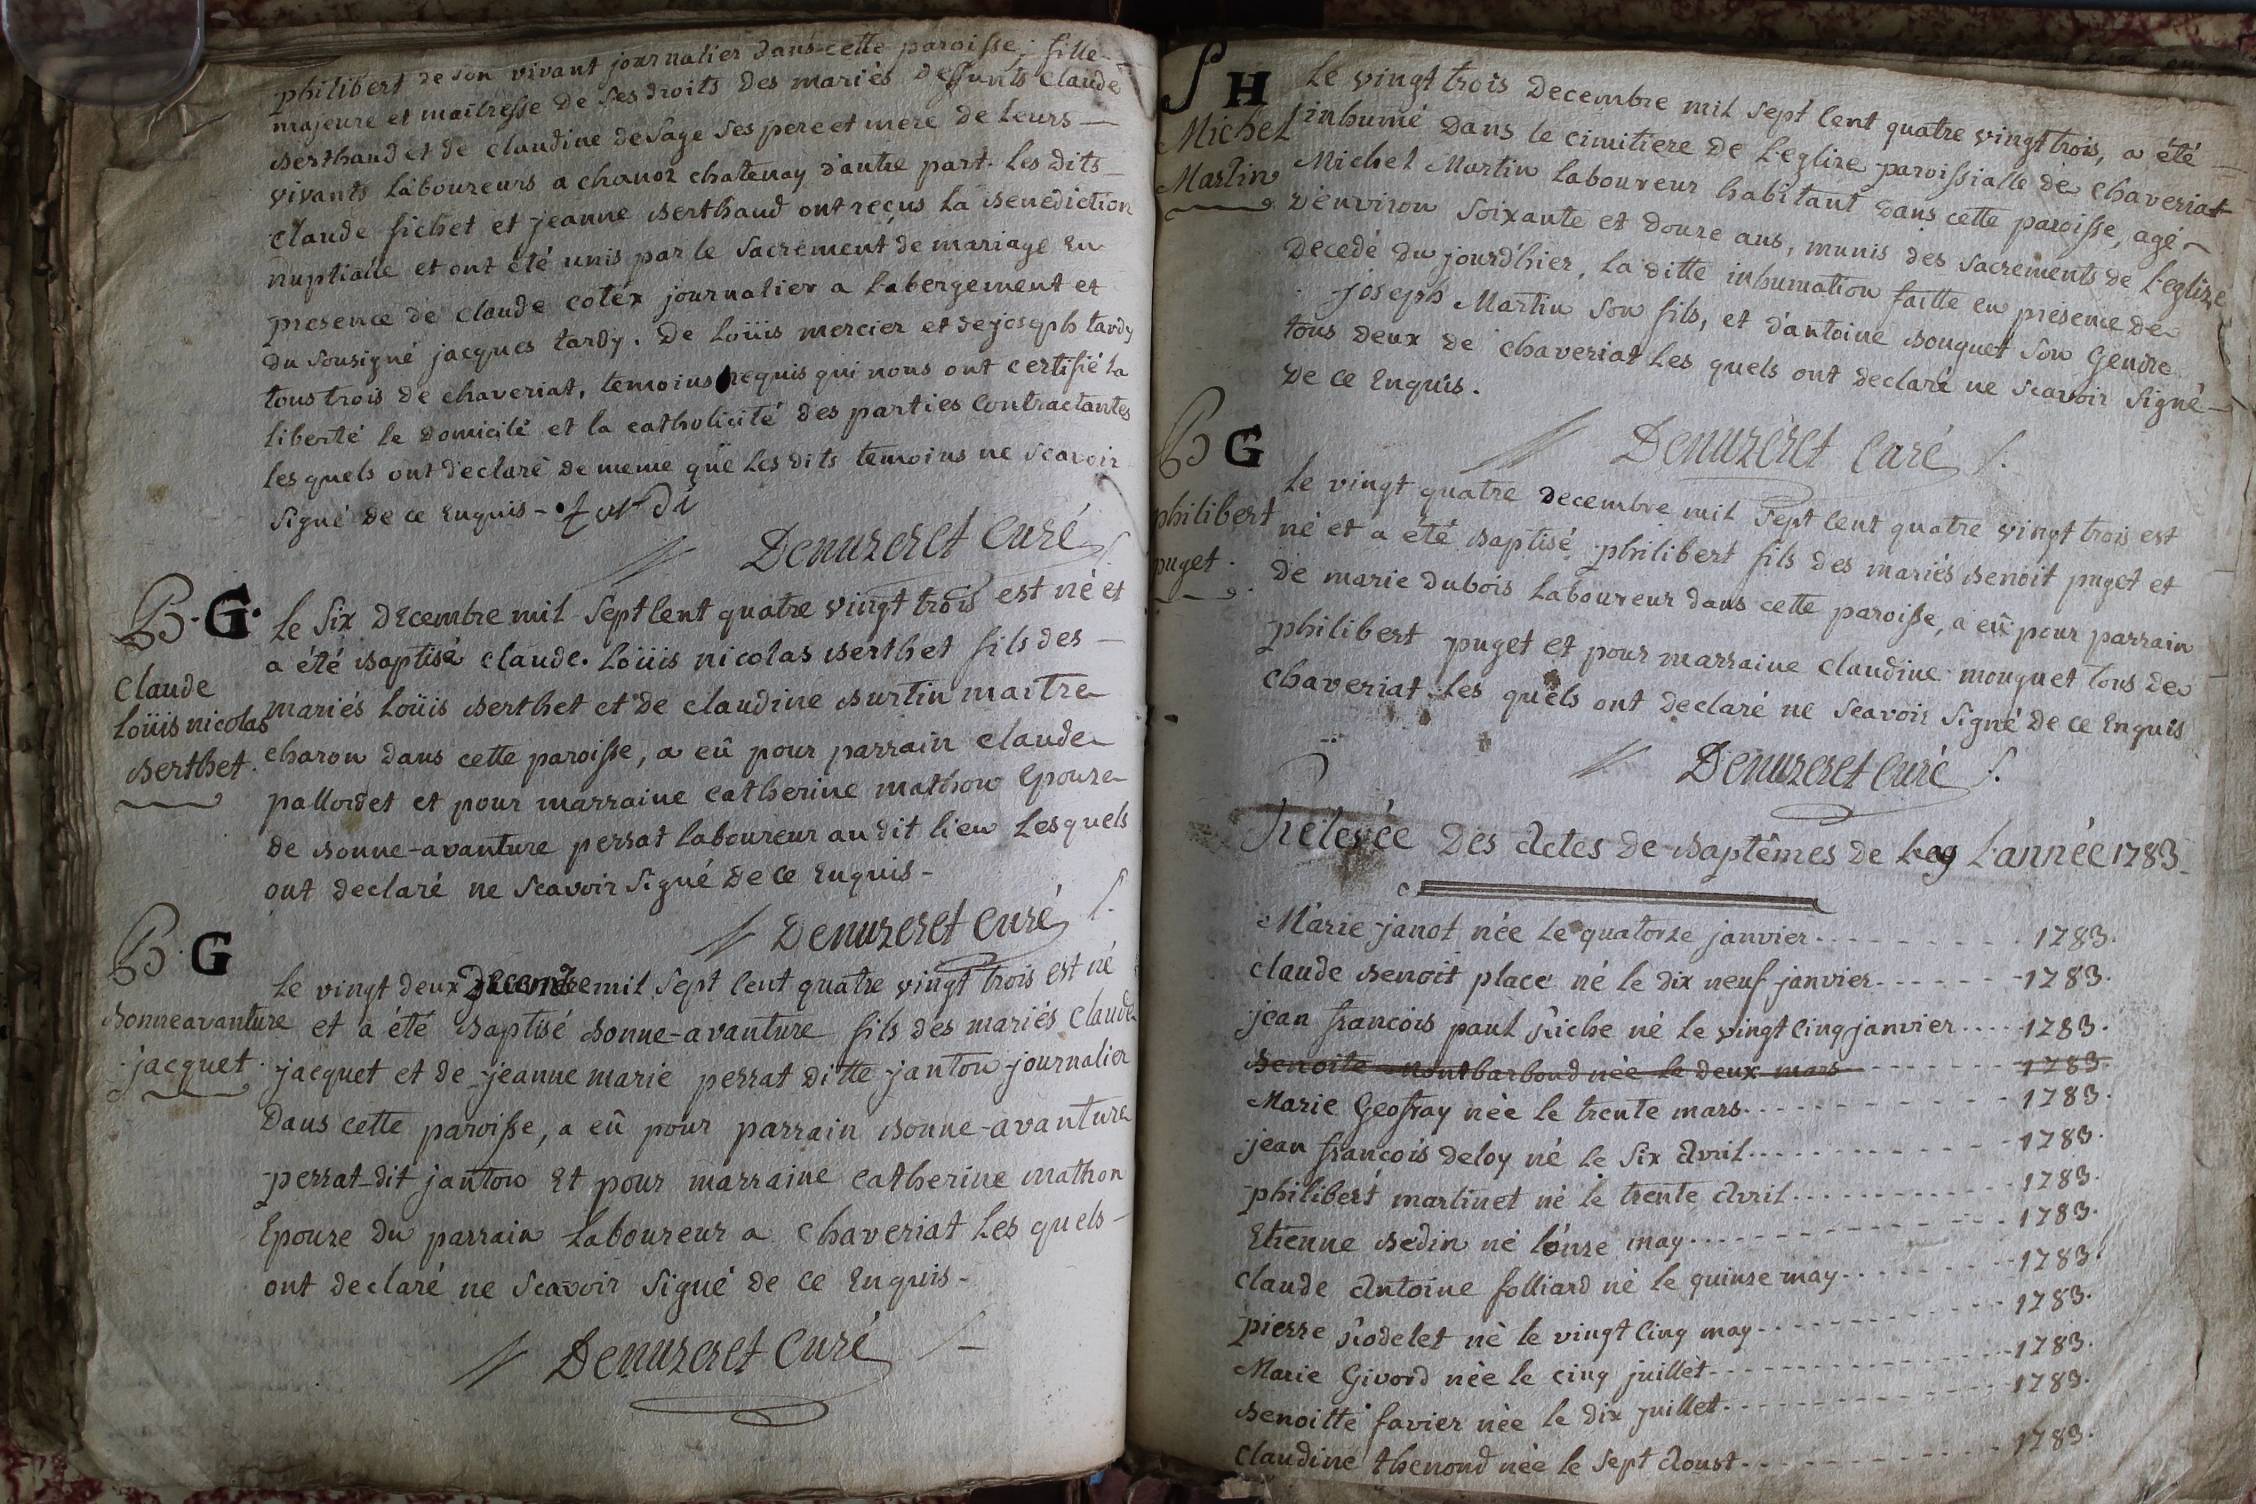 philibert de son vivant journalier dans cette paroisse, fille
majeure et maitresse de ses droits des mariés deffunts claude
berthaud et de claudine desage ses pere et mere de leurs
vivants laboureurs a chanoz chatenay d'autre part. les dits
claude fichet et jeanne berthaud ont reçus la benediction
nuptialle et ont été unis par le sacrement de mariage en
presence de claude cotex journalier a l'abergement et
du sousigné jacques tardy. de loüis mercier et de joseph tardy
tous trois de chaveriat, temoins requis qui nous ont certifié la
liberté le domicile et la catholicité des parties contractantes
les quels ont declaré de meme que les dits temoins ne scavoir
signé de ce enquis -
Denuzeret curé
B. G.
claude
loüis nicolas
berthet.
le six decembre mil sept cent quatre vingt trois est né et
a été baptisé claude. loüis nicolas berthet fils des
mariés loüis berthet et de claudine burtin maitre
charon dans cette paroisse, a eû pour parrain claude
pallordet et pour marraine catherine mathon epouze
de bonne-avanture perrat laboureur au dit lieu lesquels
ont declaré ne scavoir signé de ce enquis -
Denuzeret curé
B. G
bonneavanture
jacquet.
le vingt deux decembre mil sept cent quatre vingt trois est né
et a été baptisé bonne-avanture fils des mariés claude
jacquet et de jeanne marie perrat ditte janton journalier
dans cette paroisse, a eû pour parrain bonne-avanture
perrat dit janton et pour marraine catherine mathon
epouze du parrain laboureur a chaveriat les quels
ont declaré ne scavoir signé de ce enquis -
Denuzeret curé
S H
Michel
Martin
le vingt trois decembre mil sept cent quatre vingt trois, a été
inhumé dans le cimitiere de l'eglize paroissialle de chaveriat
Michel Martin laboureur habitant dans cette paroisse, agé
d'environ soixante et douze ans, munis des sacrements de l'eglize
decedé du jourd'hier, la ditte inhumation faitte en presence de
joseph Martin son fils, et d'antoine bouquet son gendre
tous deux de chaveriat les quels ont declaré ne scavoir signé
de ce enquis.
Denuzeret curé
B G
philibert
puget.
le vingt quatre decembre mil sept cent quatre vingt trois est
né et a été baptisé philibert fils des mariés benoit puget et
de marie dubois laboureur dans cette paroisse, a eû pour parrain
philibert puget et pour marraine claudine monguet tous de
chaveriat les quels ont declaré ne scavoir signé de ce enquis
Denuzeret curé
Relevée des actes de baptêmes de l'année 1783.
Marie janot née le quatorze janvier 1783.
claude benoit place né le dix neuf janvier 1783.
jean francois paul riche né le vingt cinq janvier 1783.
benoite montbarbond née le deux mars 1783.
Marie Geoffray née le trente mars 1783.
jean francois deloy né le six avril 1783.
philibert martinet né le trente avril 1783.
Etienne bedin né l'onze may 1783.
claude antoine folliard né le quinze may 1783.
pierre rodelet né le vingt cinq may 1783.
Marie Givord née le cinq juillet 1783.
benoitte favier née le dix juillet 1783.
claudine thenond née le sept aoust 1783.